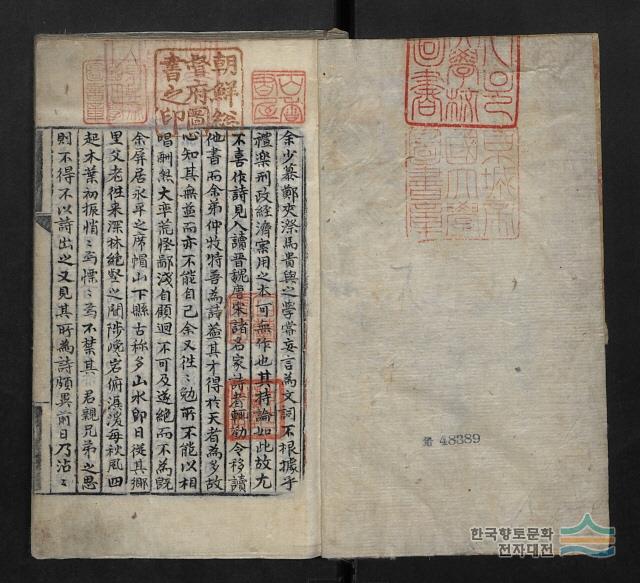 余少慕鄭夾漈馬貴與之學嘗妄言爲文詞不根據乎
禮樂刑政經濟案用之本可無作也其持論如此故尤
不喜作詩見人讀晉魏唐宋諸名家詩者輒勸令移讀
他書而余弟仲牧特善爲詩蓋其才得於天者爲多故
心知其無益而亦不能自已余又往〻勉所不能以相
唱酬然大率荒怪鄙淺自顧迴不可及遂絶而不爲旣
余屏居永平之席帽山下縣古称多山水卽日從其鄕
里父老徃來深林絶壑之間陟巉岩俯潺湲每秋風四
起木葉初振悄〻焉慄〻焉不禁其 君親兄弟之思
則不得不以詩出之又見其所爲詩頗異前日乃沾〻
朝鮮總
督府圖
書之印
48389
한국향토문화
전자대전